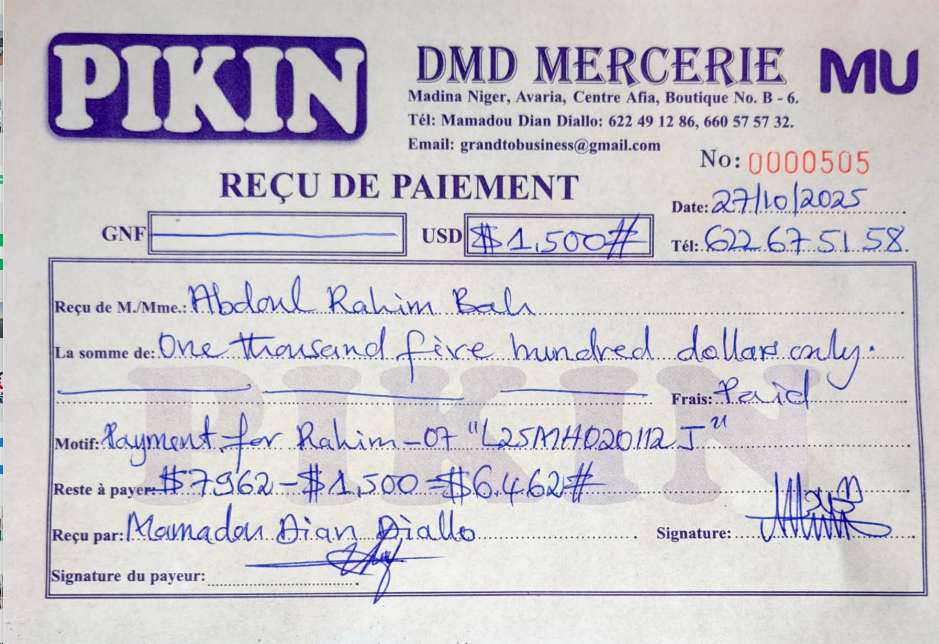 PIKIN
DMD MERCERIE
MU
Madina Niger, Avaria, Centre Afia, Boutique No. B - 6.
Tél: Mamadou Dian Diallo: 622 49 12 86, 660 57 57 32.
Email: grandtobusiness@gmail.com
No: 0000505
REÇU DE PAIEMENT
Date: 27/10/2025
GNF USD $1,500# Tél: 622 67 51 58.
Reçu de M./Mme.: Abdoul Rahim Bah
La somme de: One thousand five hundred dollars only.
Frais: Paid
Motif: Payment for Rahim-07 "L25MH020112 J"
Reste à payer: $7962-$1,500=$6.462#
Reçu par: Mamadou Dian Diallo Signature:
Signature du payeur:
PIKIN